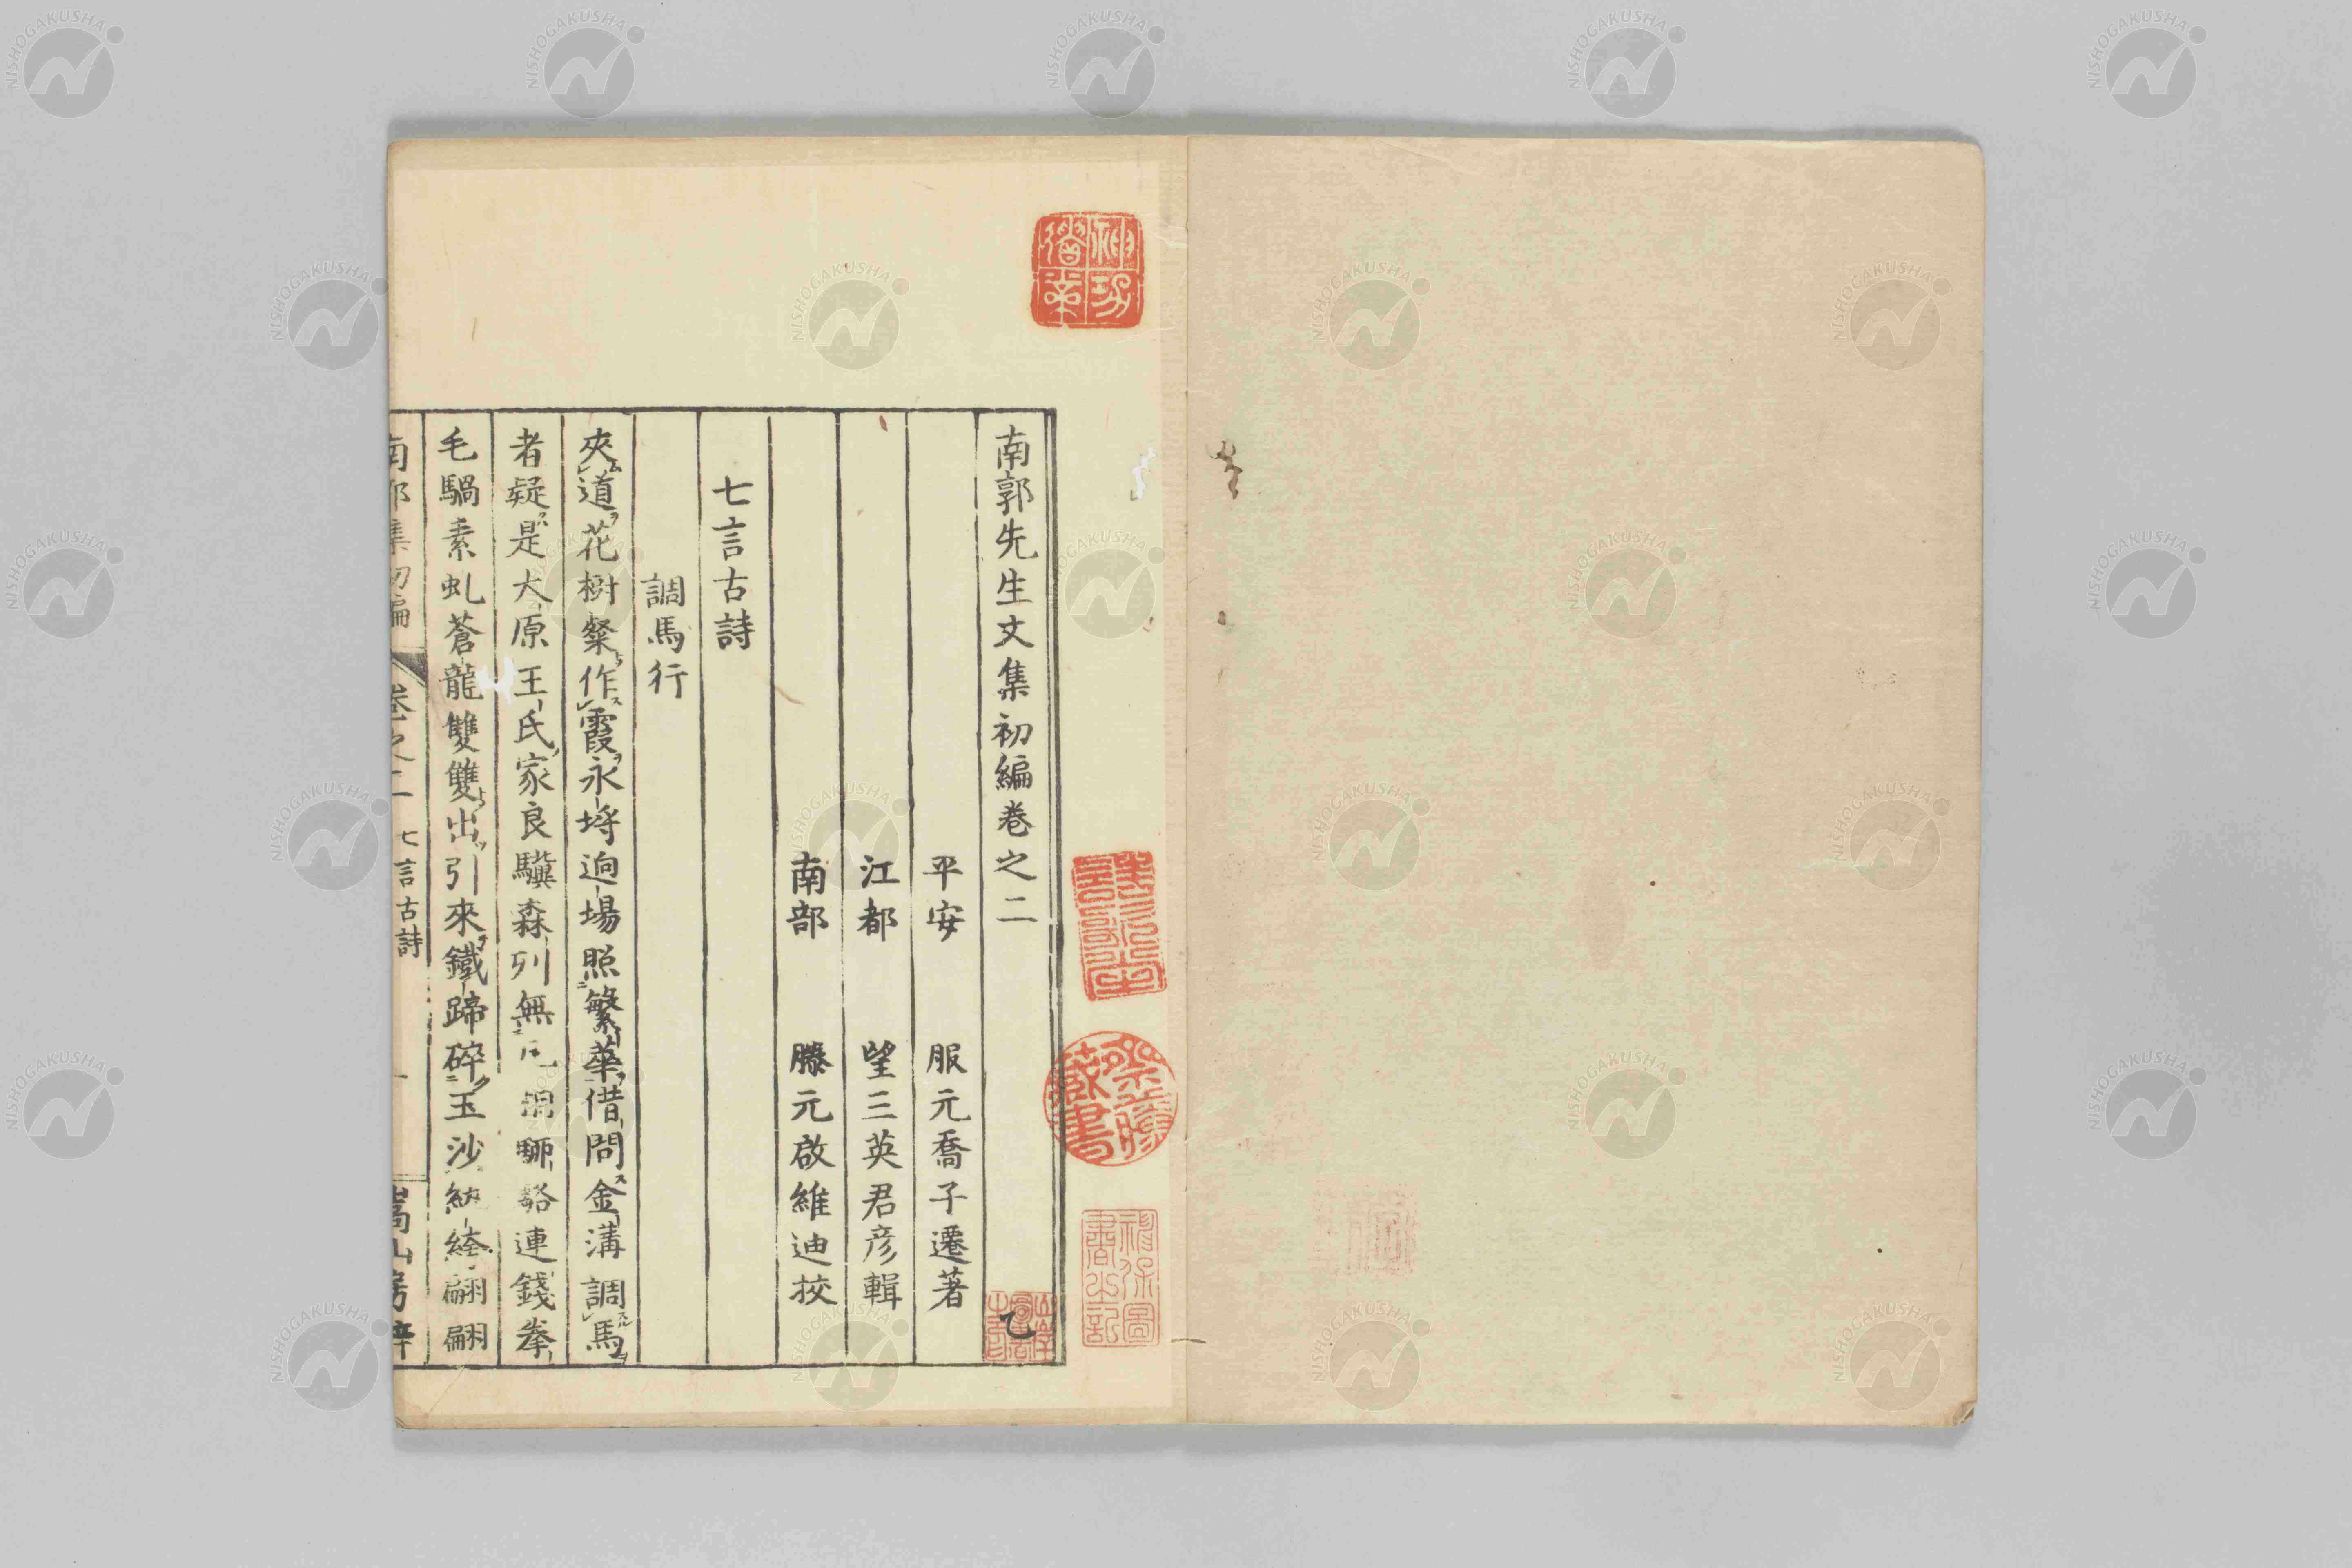 南郭先生文集初編卷之二
平安 服元喬子遷著
江都 望三英君彥輯
南部 滕元啟維迪挍
七言古詩
調馬行
夾道花樹粲作霞永埒逈場照繁華借問金溝調馬
者疑是大原王氏家良驥森列無 駟駱連錢拳
毛騧素虬蒼龍雙雙出引來鐵蹄碎玉沙紈綺翩翩
南郭集初編 卷之二 七言古詩 一 嵩山房梓
乙
祭薛藏書
NISHOGAKUSHA